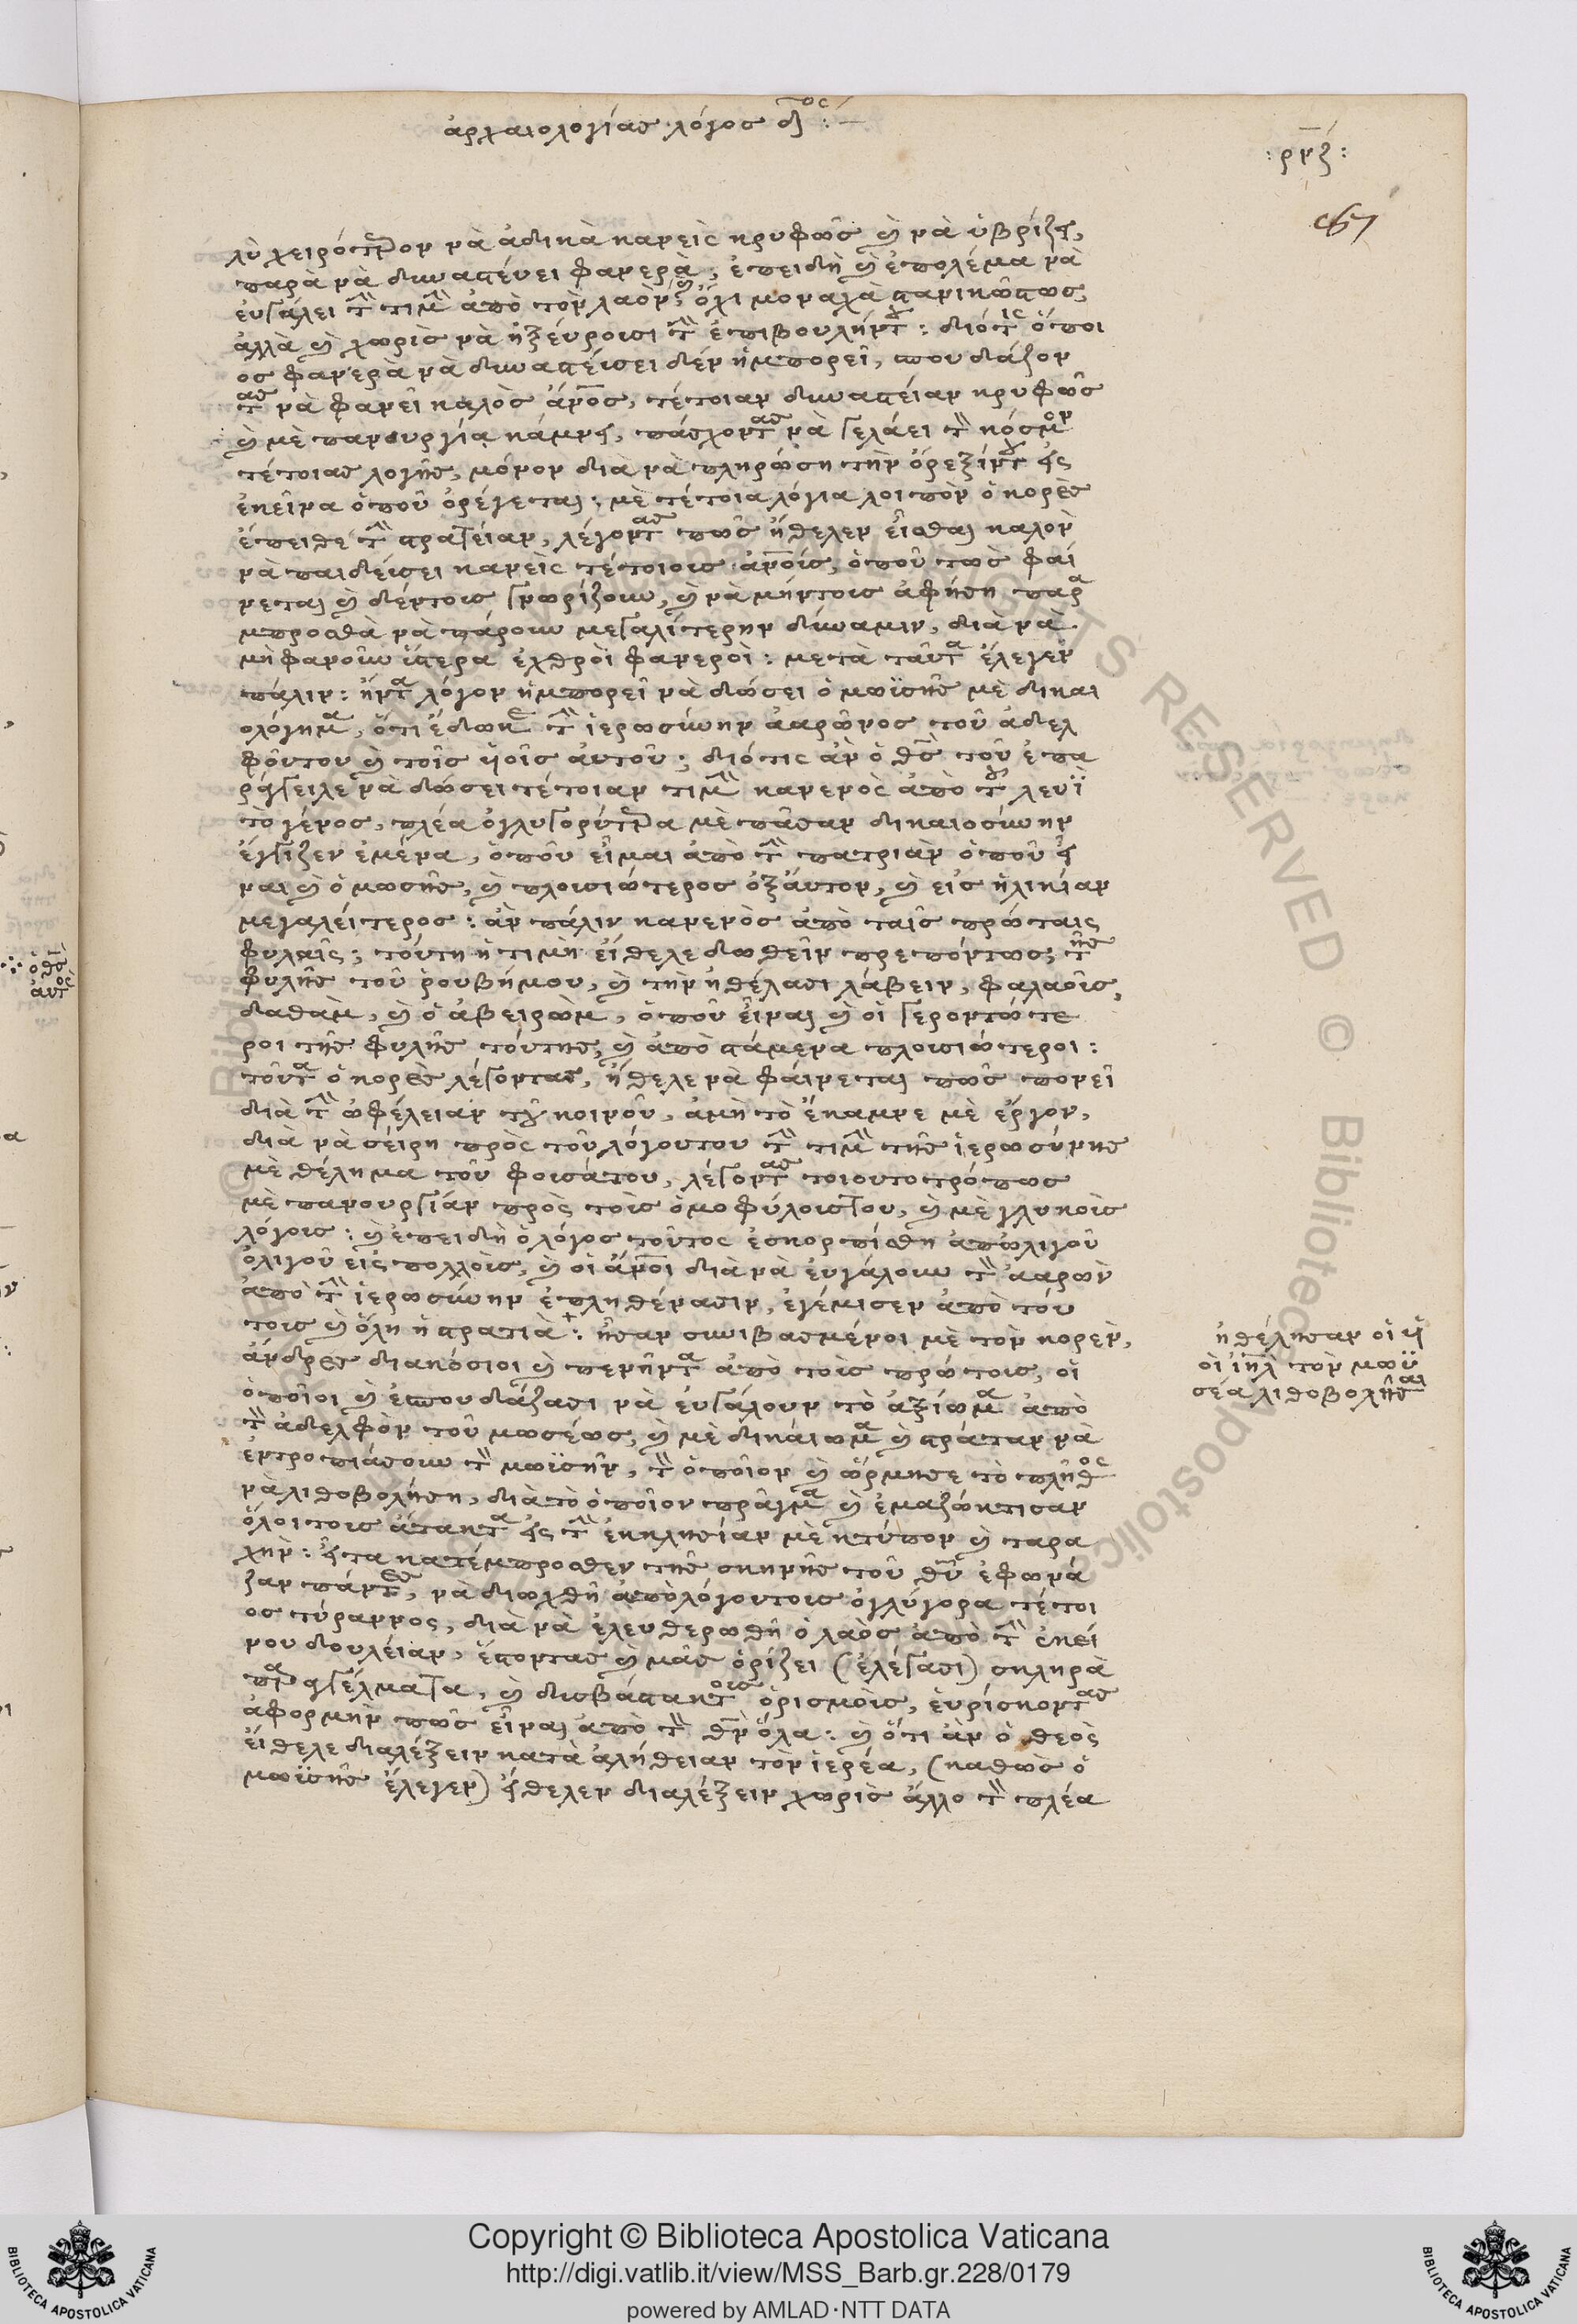 ἀρχαιολογίας λόγος δος :—
:ρκζ:
157
λὺ χειρότερον νὰ ἀδικὰ κανεὶς κρυφῶς καὶ νὰ ὑβρίζει,
παρὰ νὰ δυναστέυει φανερὰ; ἐπειδὴ καὶ ἐπολέμα νὰ
ἐυγάλει τὴν τιμὴν ἀπὸ τὸν λαὸν, ὄχι μοναχὰ
ἀλλὰ καὶ χωρὶς νὰ ἠξέυρουσι τὴν ἐπιβουλήντου: διότις ὅποι
ος φανερὰ νὰ δυναστέυσει δὲν ἠμπορεῖ, σπουδάζον
τας νὰ φανεῖ καλὸς ἄνος, τέτοιαν δυναστείαν κρυφῶς
καὶ μὲ πανουργία κάμνει, πάσχοντας νὰ γελάει τὸν κόσμον
τέτοιας λογῆς, μόνον διὰ νὰ πληρώση τὴν ὄρεξίντου εἰς
ἐκεῖνα ὁποῦ ὀρέγεται: μὲ τέτοια λόγια λοιπὸν ὁ κορὲς
ἔπειθε τὴν στρατείαν, λέγοντας πῶς ἤθελεν εἶσθαι καλὸν
νὰ παιδέυσει κανεὶς τέτοιους ἀνους, ὁποῦ τως φαί
νεται καὶ δέντους γνωρίζουν, καὶ νὰ μήντους ἀφήση παρ
μπροσθὰ νὰ πάρουν μεγαλίτερην δύναμιν, διὰ νὰ
μὴ φανοῦν ὕστερα ἐχθροὶ φανεροὶ: μετὰ ταῦτα ἔλεγεν
πάλιν: ἤντα λόγον ἠμπορεῖ νὰ δώσει ὁ μωϋσῆς μὲ δικαι
ολόγημα, ὅτι ἔδωκε τὴν ἱερωσύνην ἀαρῶνος τοῦ ἀδελ
φόυτου καὶ τοῖς ὑοῖς ἀυτοῦ; διότις ἂν ὁ θς τοῦ ἐπα
ράγγειλε νὰ δώσει τέτοιαν τιμὴν κανενὸς ἀπὸ τοῦ λευῒ
τὸ γένος, πλέα ὀγλυγορύτερα μὲ πᾶσαν δικαιοσύνην
ἔγγιζεν ἐμένα, ὁποῦ εἶμαι ἀπὸ τὴν πατριὰν ὁποῦ εἶ
ναι καὶ ὁ μωσῆς, καὶ πλουσιώτερος ὀξάυτον, καὶ εἰς ἡλικίαν
μεγαλείτερος: ἂν πάλιν κανενὸς ἀπὸ ταῖς πρώταις
φυλαῖς; τούτη ἡ τιμὴ εἴθελε δωθεῖν πρεπόντως, τῆς
φυλῆς τοῦ ῥουβήμου, καὶ τὴν ἠθέλασι λάβειν, φαλαοῖς,
δαθαμ, καὶ ὁ ἀβειρὼμ, ὁποῦ εἶναι καὶ οἱ γεροντώτε
ροι τῆς φυλῆς τούτης, καὶ ἀπὸ στάμενα πλουσιώτεροι:
τοῦτα ὁ κορὲς λέγοντας, ἤθελε νὰ φάινεται πῶς πονεῖ
διὰ τὴν ὠφέλειαν τοῦ κοινοῦ, ἀμὴ τὸ ἔκαμνε μὲ ἔργον,
διὰ νὰ σέιρη πρὸς τοῦ λόγουτου τὴν τιμὴν τῆς ἱερωσύνης
μὲ θέλημα τοῦ φουσάτου, λέγοντας τοιουτοτρόπως
μὲ πανουργίαν πρὸς τοὺς ὁμοφύλουςτου, καὶ μὲ γλυκοὺς
λόγους: καὶ ἐπειδὴ ὁ λόγος τοῦτος ἐσκορπίσθη ἀπωλιγοῦ
ὀλιγοῦ εἰς πολλοὺς, καὶ οἱ ἄνοι διὰ νὰ ἐυγάλουν τὸν ἀαρὼν
ἀπὸ τὴν ἱερωσύνην ἐπληθένασιν, ἐγέμισεν ἀπὸ τόυ
τους καὶ ὅλη ἡ στρατιὰ: ἦσαν συνιβασμένοι μὲ τὸν κορεν,
ἄνδρες διακόσιοι καὶ πενῆντα ἀπὸ τοὺς πρώτους, οἱ
ὁποῖοι καὶ ἐσπουδάζασι νὰ ἐυγάλουν τὸ ἀξίωμα ἀπὸ
τὸν ἀδελφὸν τοῦ μωσέως, καὶ μὲ δικάιωμα καὶ στράταν νὰ
ἐντροπιάσουν τὸν μωϋσῆν, τὸν ὁποῖον καὶ ὥρμησε τὸ πλῆθος
νὰ λιθοβολήση, διὰ τὸ ὁποῖον πρᾶγμα καὶ ἐμαζώκτισαν
ὅλοι τους ἄτακτα εἰς τὴν ἐκκλησίαν μὲ κτύπον καὶ ταρα
χὴν: εἶτα κατέμπροσθεν τῆς σκηνῆς τοῦ θῦ ἐφωνά
ζαν πάντες, νὰ διωχθῆ ἀπὸλόγουτους ὀγλύγορα τέτοι
ος τύραννος, διὰ νὰ ἐλευθερωθῆ ὁ λαὸς ἀπὸ τὴν ἐκεί
νου δουλείαν, ἔστοντας καὶ μᾶς ὁρίζει (ἐλέγασι) σκληρὰ
παραγγέλματα, καὶ δισβάστακτους ὁρισμοὺς, ἑυρίσκοντας
ἀφορμὴν πῶς εἶναι ἀπὸ τὸν θν ὅλα: καὶ ὅτι ἂν ὁ θεὸς
εἴθελε διαλέξειν κατὰ ἀλήθειαν τὸν ἱερέα, (καθὼς ὁ
μωϋσῆς ἔλεγεν) εἴθελεν διαλέξειν χωρὶς ἄλλο τὸν πλέα
ἠθέλησαν οἱ ὑ
οὶ ἰηλ τὸν μωϋ
σέα λιθοβολῆσαι
Copyright © Biblioteca Apostolica Vaticana
http://digi.vatlib.it/view/MSS_Barb.gr.228/0179
powered by AMLAD·NTT DATA